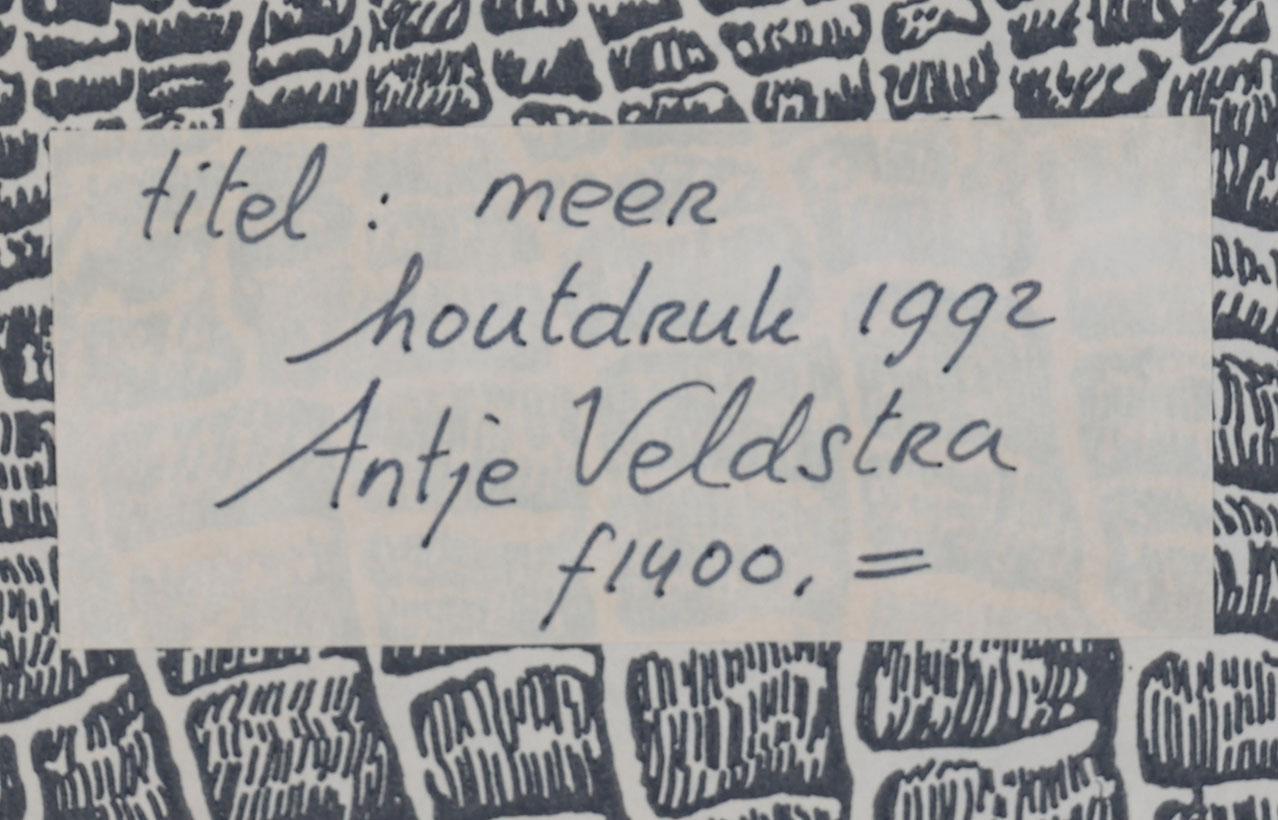 titel : meer
houtdruk 1992
Antje Veldstra
f1400,=